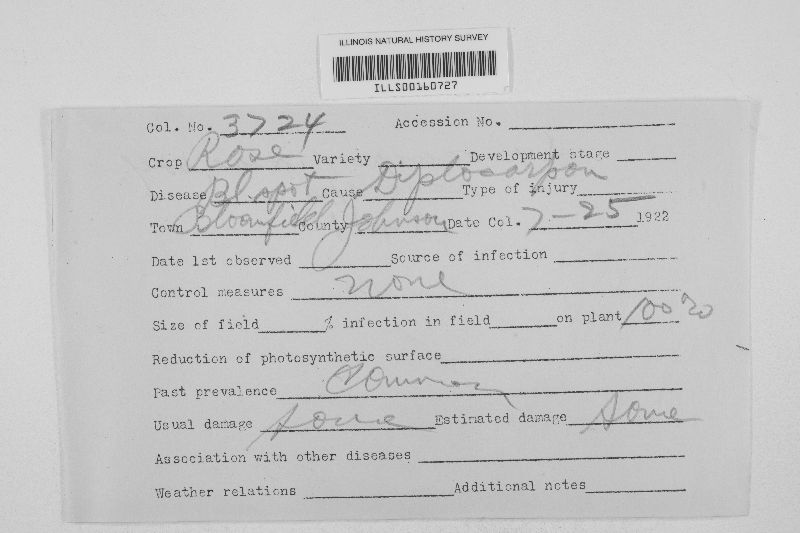 ILLINOIS NATURAL HISTORY SURVEY
ILLS00160727
Col. No. 3724 Accession No.
Crop Rose Variety Development stage
Disease Bl spot Cause Diplocarpon Type of injury
Town Bloomfield County Johnson Date Col. 7-25 1922
Date 1st observed Source of infection
Control measures none
Size of field % infection in field on plant 100%
Reduction of photosynthetic surface
Past prevalence Common
Usual damage some Estimated damage some
Association with other diseases
Weather relations Additional notes